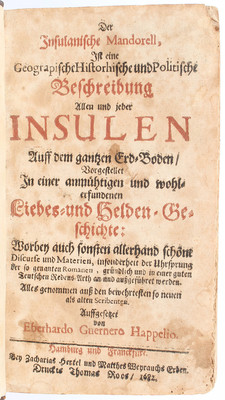 Der
Insulanische Mandorell,
Ist eine
Geograpische Historhische und Politische
Beschreibung
Allen und jeder
INSULEN
Auff dem gantzen Erd-Boden/
Vorgestellet
In einer anmühtigen und wohl-
erfundenen
Liebes- und Helden-Ge-
schichte:
Worbey auch sonsten allerhand schöne
Discurse und Materien, insonderheit der Uhrsprung
der so genanten Romanen, gründlich und in einer guten
Teutschen Redens Arth an und außgeführet werden.
Alles genommen auß den bewehrtesten so neuen
als alten Scribenten.
Auffgesetzet
von
Eberhardo Guernero Happelio.
Hamburg und Franckfurt.
Bey Zacharias Hertel und Matthes Weyrauchs Erben.
Druckts Thomas Roos/ 1682.